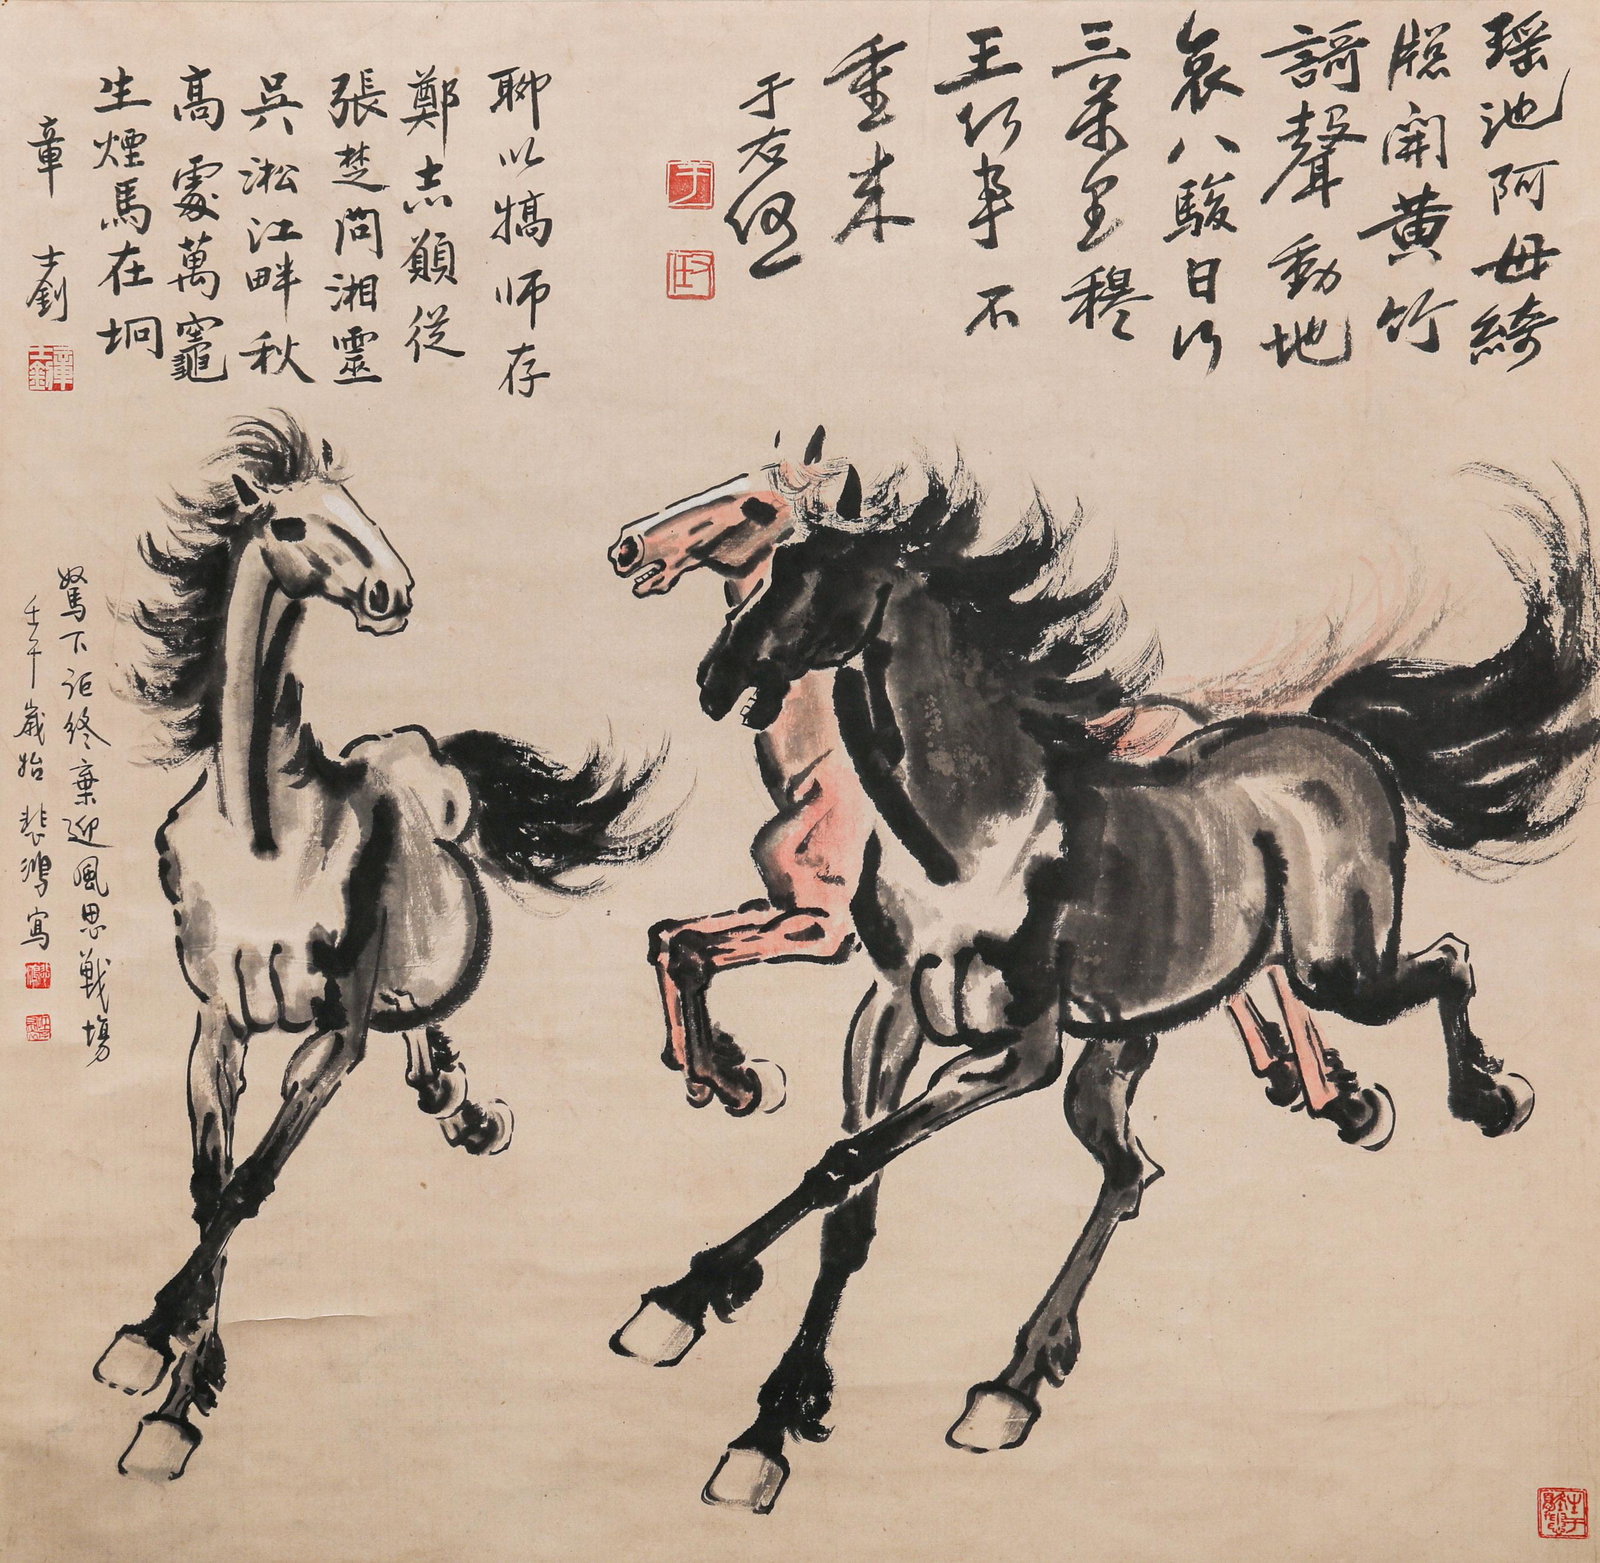 瑶池阿母綺
牕開黄竹
謌聲動地
哀八駿日行
三萬里穆
王何事不
重来
于右任
聊以犒师存
鄭志願從
張楚問湘靈
吴淞江畔秋
高處萬竈
生煙馬在坰
章士釗
章士釗
駑下詎終棄迎風思戰場
壬午歲始悲鴻寫
悲鴻